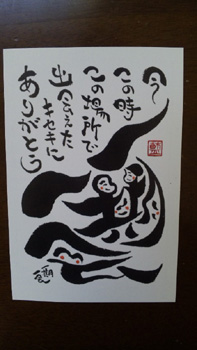 今
この時
この場所で
出会えた
キセキに
ありがとう